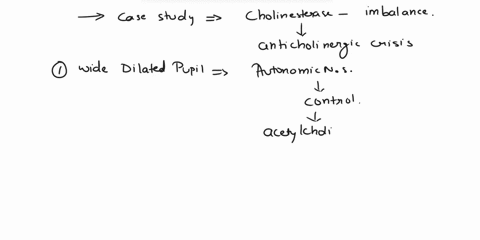 → Case study ⇒ Cholinesterase - imbalance.
↓
anticholinergic crisis
① wide Dilated Pupil ⇒ Autonomic N.s.
↓
control.
↓
acetylcholi